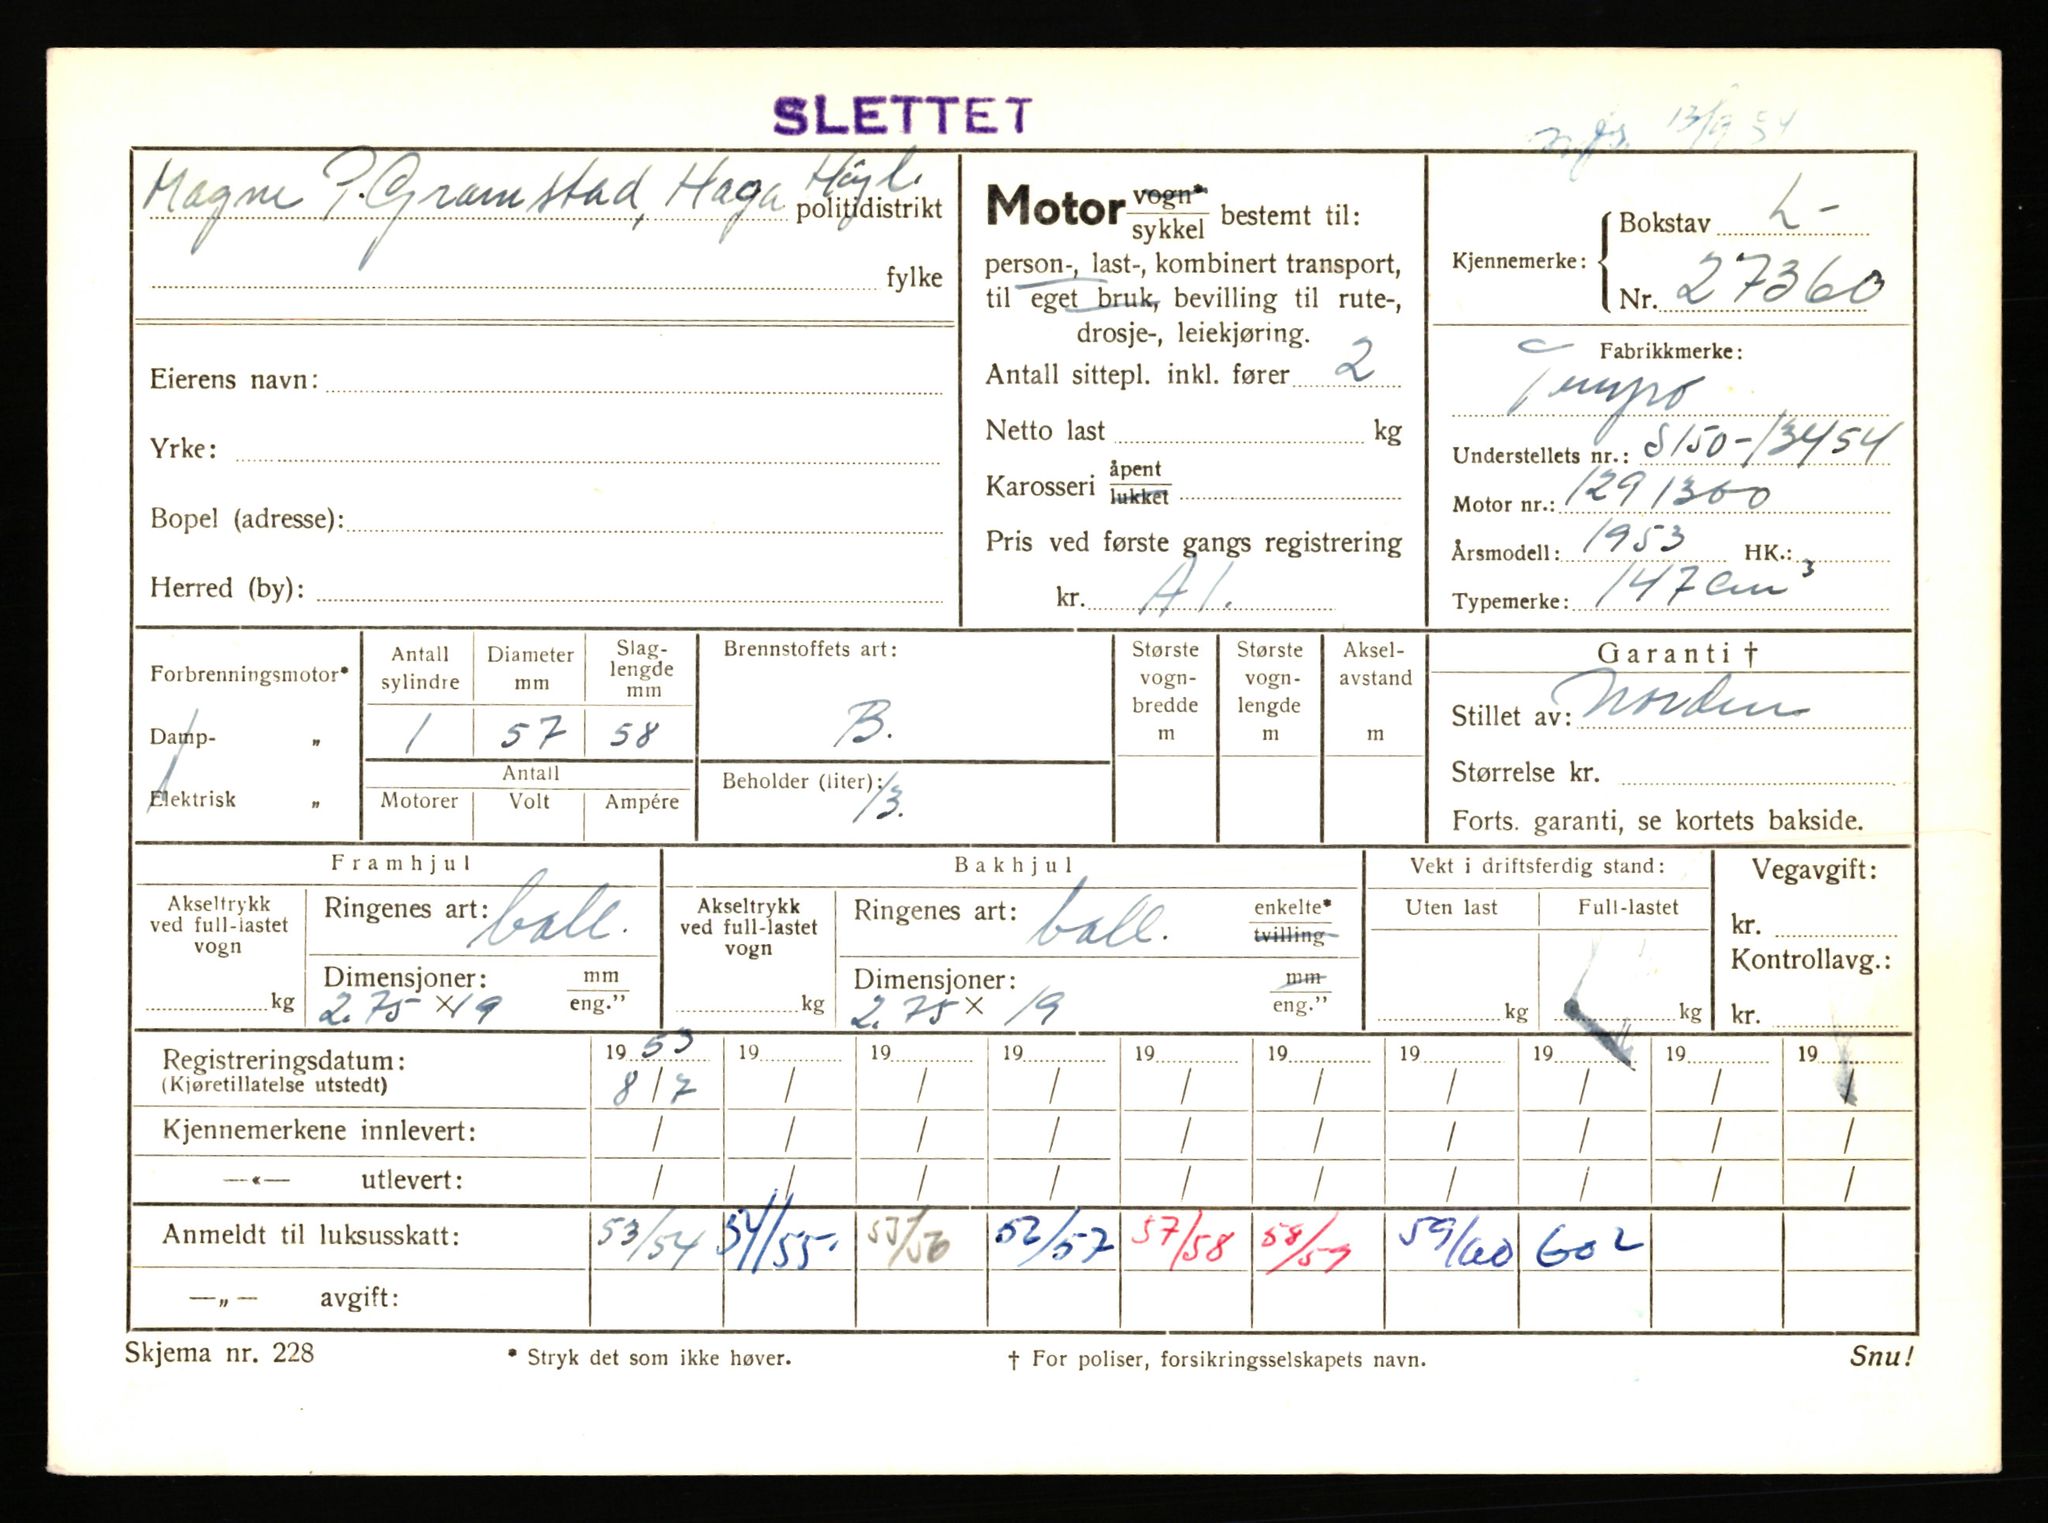 SLETTET
13/9 54
Magne P. Gramstad, Haga Høyl. politidistrikt
fylke
Eierens navn:
Yrke:
Bopel (adresse):
Herred (by):
Motor vogn*
sykkel bestemt til:
person-, last-, kombinert transport,
til eget bruk, bevilling til rute-,
drosje-, leiekjøring.
Antall sittepl. inkl. fører 2
Netto last kg
Karosseri åpent
lukket
Pris ved første gangs registrering
kr. A 1.
Kjennemerke: Bokstav L-
Nr. 27360
Fabrikkmerke:
Tempo
Understellets nr.: S150-13454
Motor nr.: 1291360
Årsmodell: 1953 HK.:
Typemerke: 147 cm³
Forbrenningsmotor*
Damp- „
Elektrisk „
Antall sylindre Diameter mm Slag-lengde mm
1 57 58
Antall
Motorer Volt Ampére
Brennstoffets art:
B.
Beholder (liter):
13.
Største vogn-bredde m
Største vogn-lengde m
Aksel-avstand m
Garanti †
Stillet av: Norden
Størrelse kr.
Forts. garanti, se kortets bakside.
Framhjul
Akseltrykk
ved full-lastet
vogn
kg
Ringenes art: ball.
Dimensjoner: mm
2.75 x 19 eng.”
Bakhjul
Akseltrykk
ved full-lastet
vogn
kg
Ringenes art: ball. enkelte*
tvilling
Dimensjoner: mm
2.75 x 19 eng.”
Vekt i driftsferdig stand:
Uten last Full-lastet
kg kg
Vegavgift:
kr.
Kontrollavg.:
kr.
Registreringsdatum: 19 53 19 19 19 19 19 19 19 19 19
(Kjøretillatelse utstedt) 8 / 7 / / / / / / / / /
Kjennemerkene innlevert: / / / / / / / / / /
—«— utlevert: / / / / / / / / / /
Anmeldt til luksusskatt: 53/54 54/55. 55/56 52/57 57/58 58/59 59/60 602
—„— avgift:
Skjema nr. 228 * Stryk det som ikke høver. † For poliser, forsikringsselskapets navn. Snu!